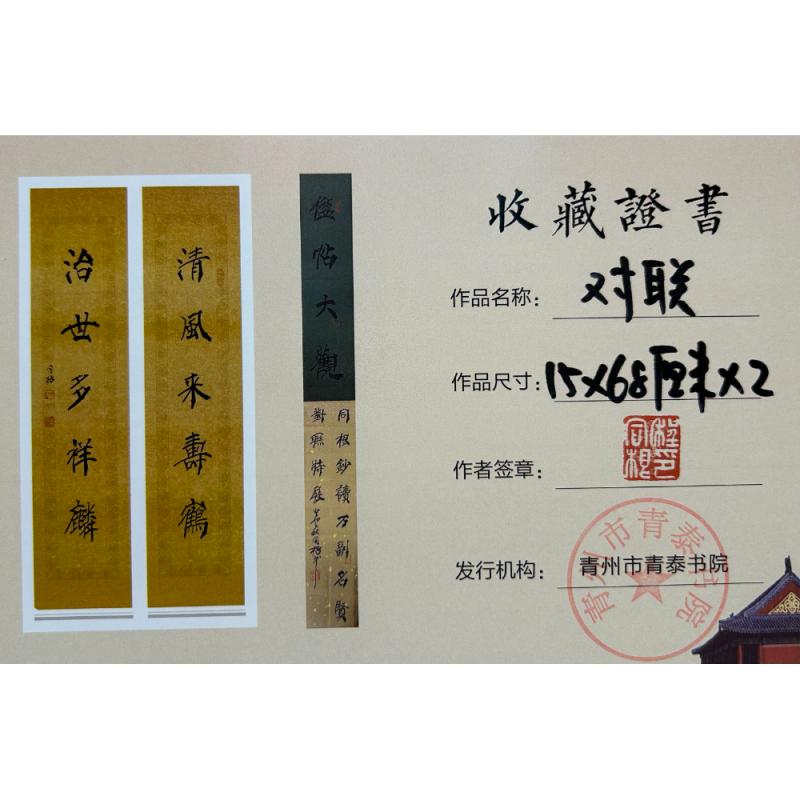 清風来壽鶴
治世多祥麟
楹帖大觀
同根鈔讀万副名賢
對聯特展
收藏證書
作品名称：对联
作品尺寸：15X68厘米X2
作者签章：
发行机构：青州市青泰书院
青州市青泰书院